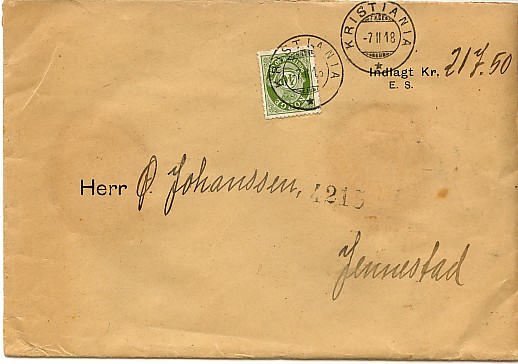 KRISTIANIA
-7 II 18
KRISTIANIA
Indlagt Kr. 217.50
E. S.
Herr O. Johanssen,
4215
Jennestad